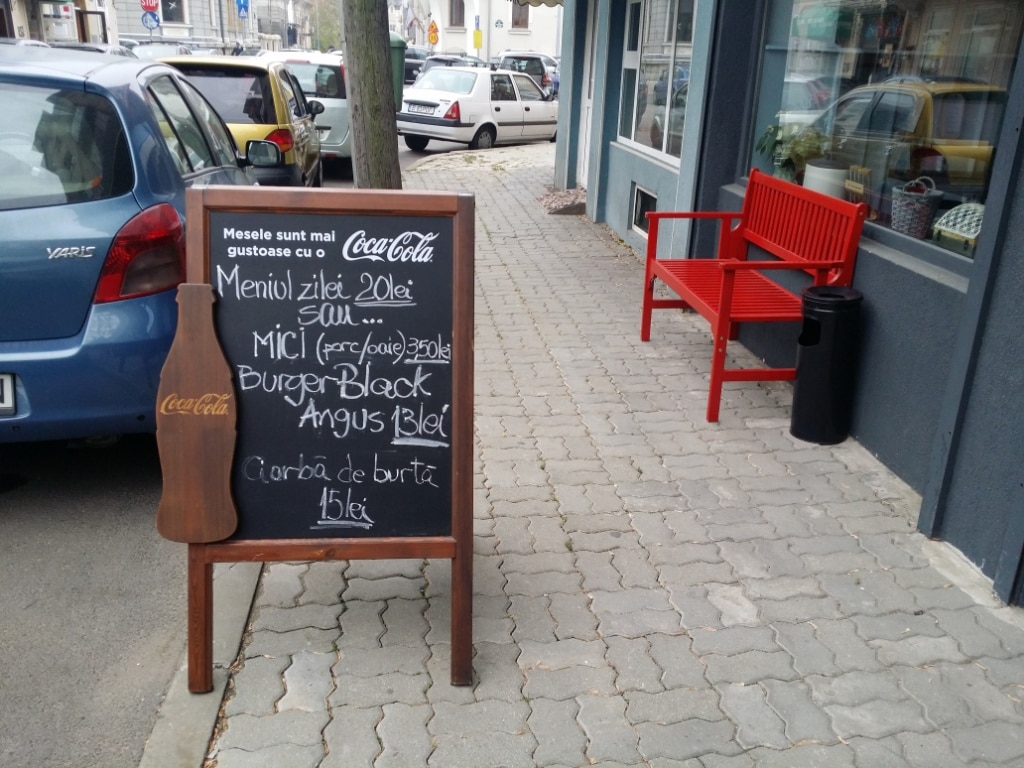 STOP
YARIS
Mesele sunt mai
gustoase cu o Coca-Cola
Meniul zilei 20lei
sau...
MICI (porc/oaie) 350lei
Burger Black
Angus 13lei
Ciorbă de burtă
15lei
Coca-Cola